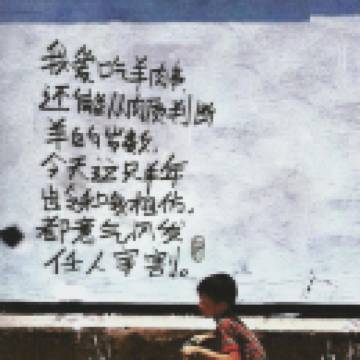 我爱吃羊肉串
还能从肉质判断
羊的岁数，
今天这只羊年
岁和我相仿，
都意气风发
任人宰割。